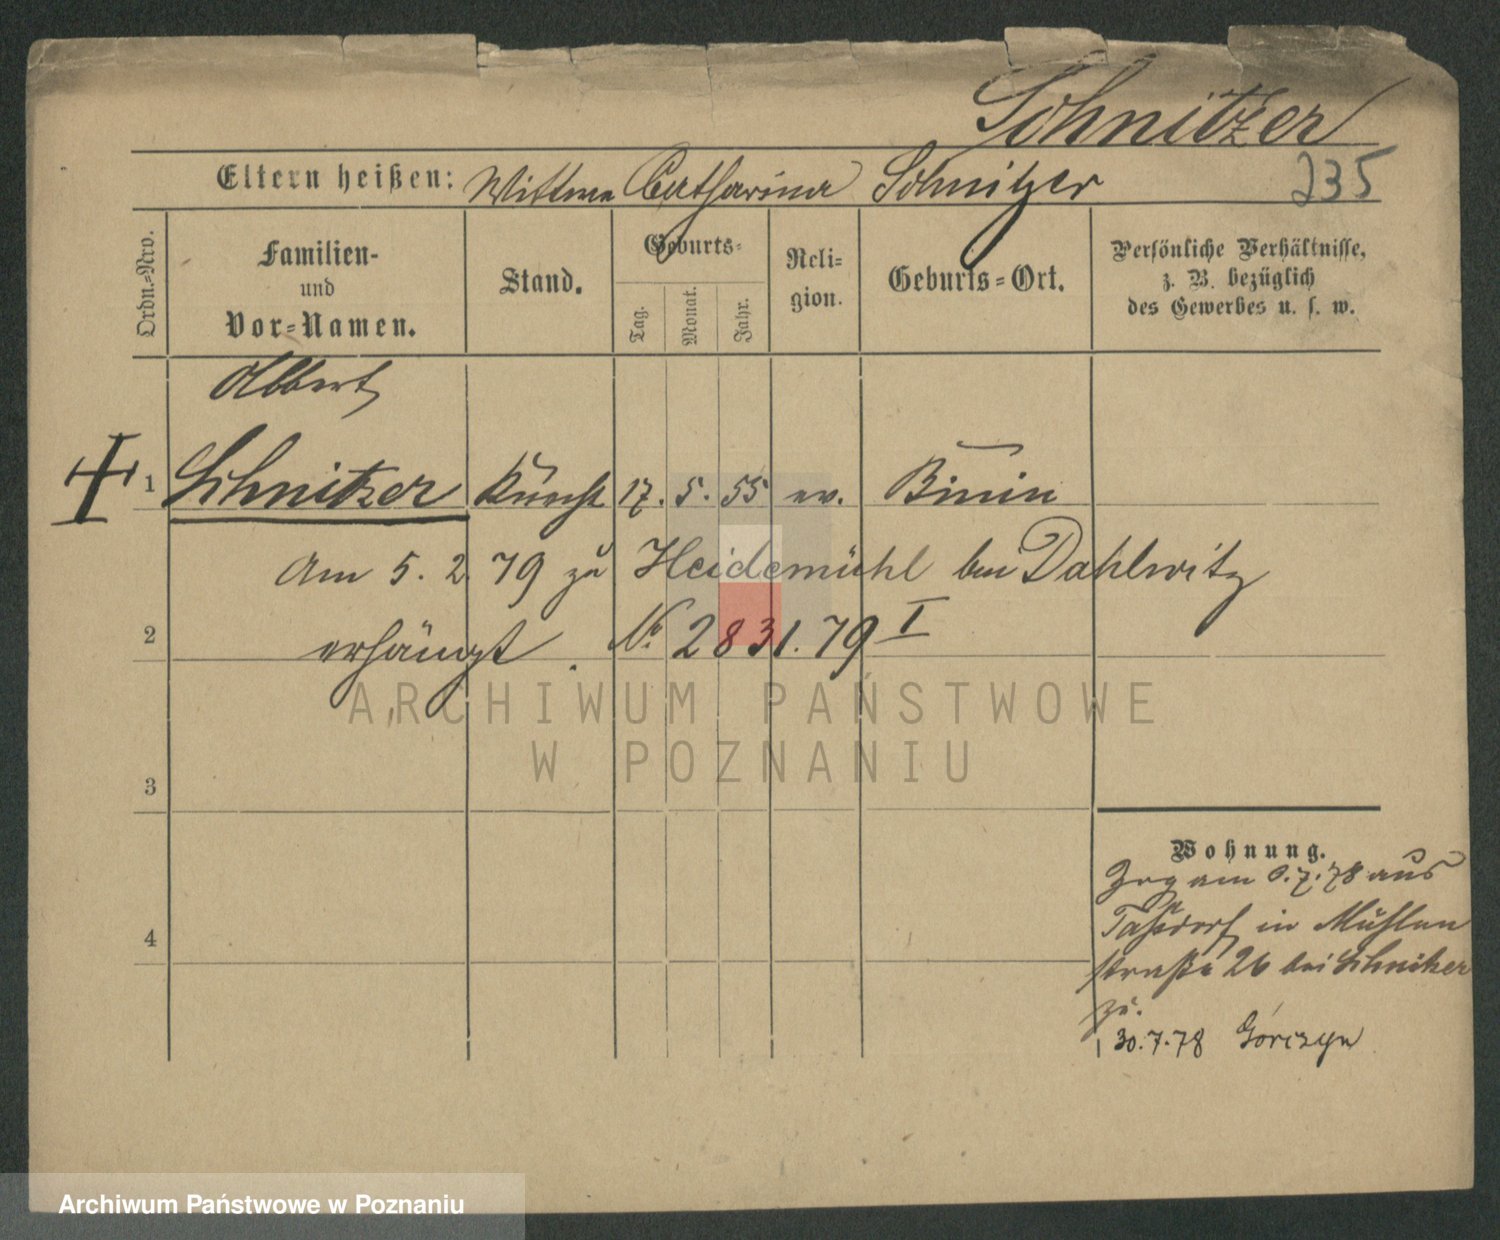 Schnitzer
235
Eltern heißen: Wittwe Catharina Schnitzer
Ordn.-Nro.
Familien-
und
Vor-Namen.
Stand.
Geburts-
Tag.
Monat.
Jahr.
Reli-
gion.
Geburts-Ort.
Persönliche Verhältnisse,
z. B. bezüglich
des Gewerbes u. s. w.
Albert
1 Schnitzer Knecht 17. 5. 55 ev. Binin
Am 5. 2. 79 zu Heidemühl bei Dahlwitz
2 erhängt. No 2831.79 I
ARCHIWUM PAŃSTWOWE
W POZNANIU
3
Wohnung.
Zog am 6.7.78 aus
Taßdorf in Mühlen
4
straße 26 bei Schnitzer
zu.
30.7.78 Górczyn
Archiwum Państwowe w Poznaniu